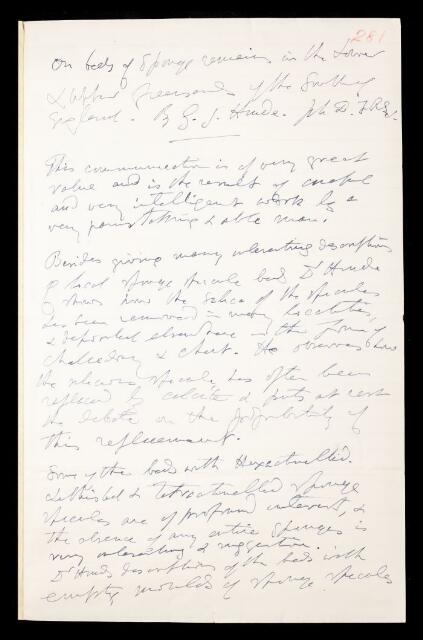 281
On beds of Sponge remains in the Lower
& Upper Greensands of the South of
England. By G. J. Hinde. Ph D. F.R.G.S.
This communication is of very great
value and is the result of careful
and very intelligent work by a
very painstaking & able man.
Besides giving many interesting descriptions
of local sponge spicule beds Dr Hinde
shows how the silica of the spicules
has been removed in many localities,
& deposited elsewhere in the form of
chalcedony & chert. He observes how
the siliceous spicule has often been
replaced by calcite & puts at rest
the debate on the possibility of
this replacement.
Some of the beds with Hexactinellid.
Lithistid & Tetractinellid sponge
spicules are of profound interest, &
the absence of any entire sponges is
very interesting & suggestive.
Dr Hinde's descriptions of the beds with
empty moulds of sponge spicules